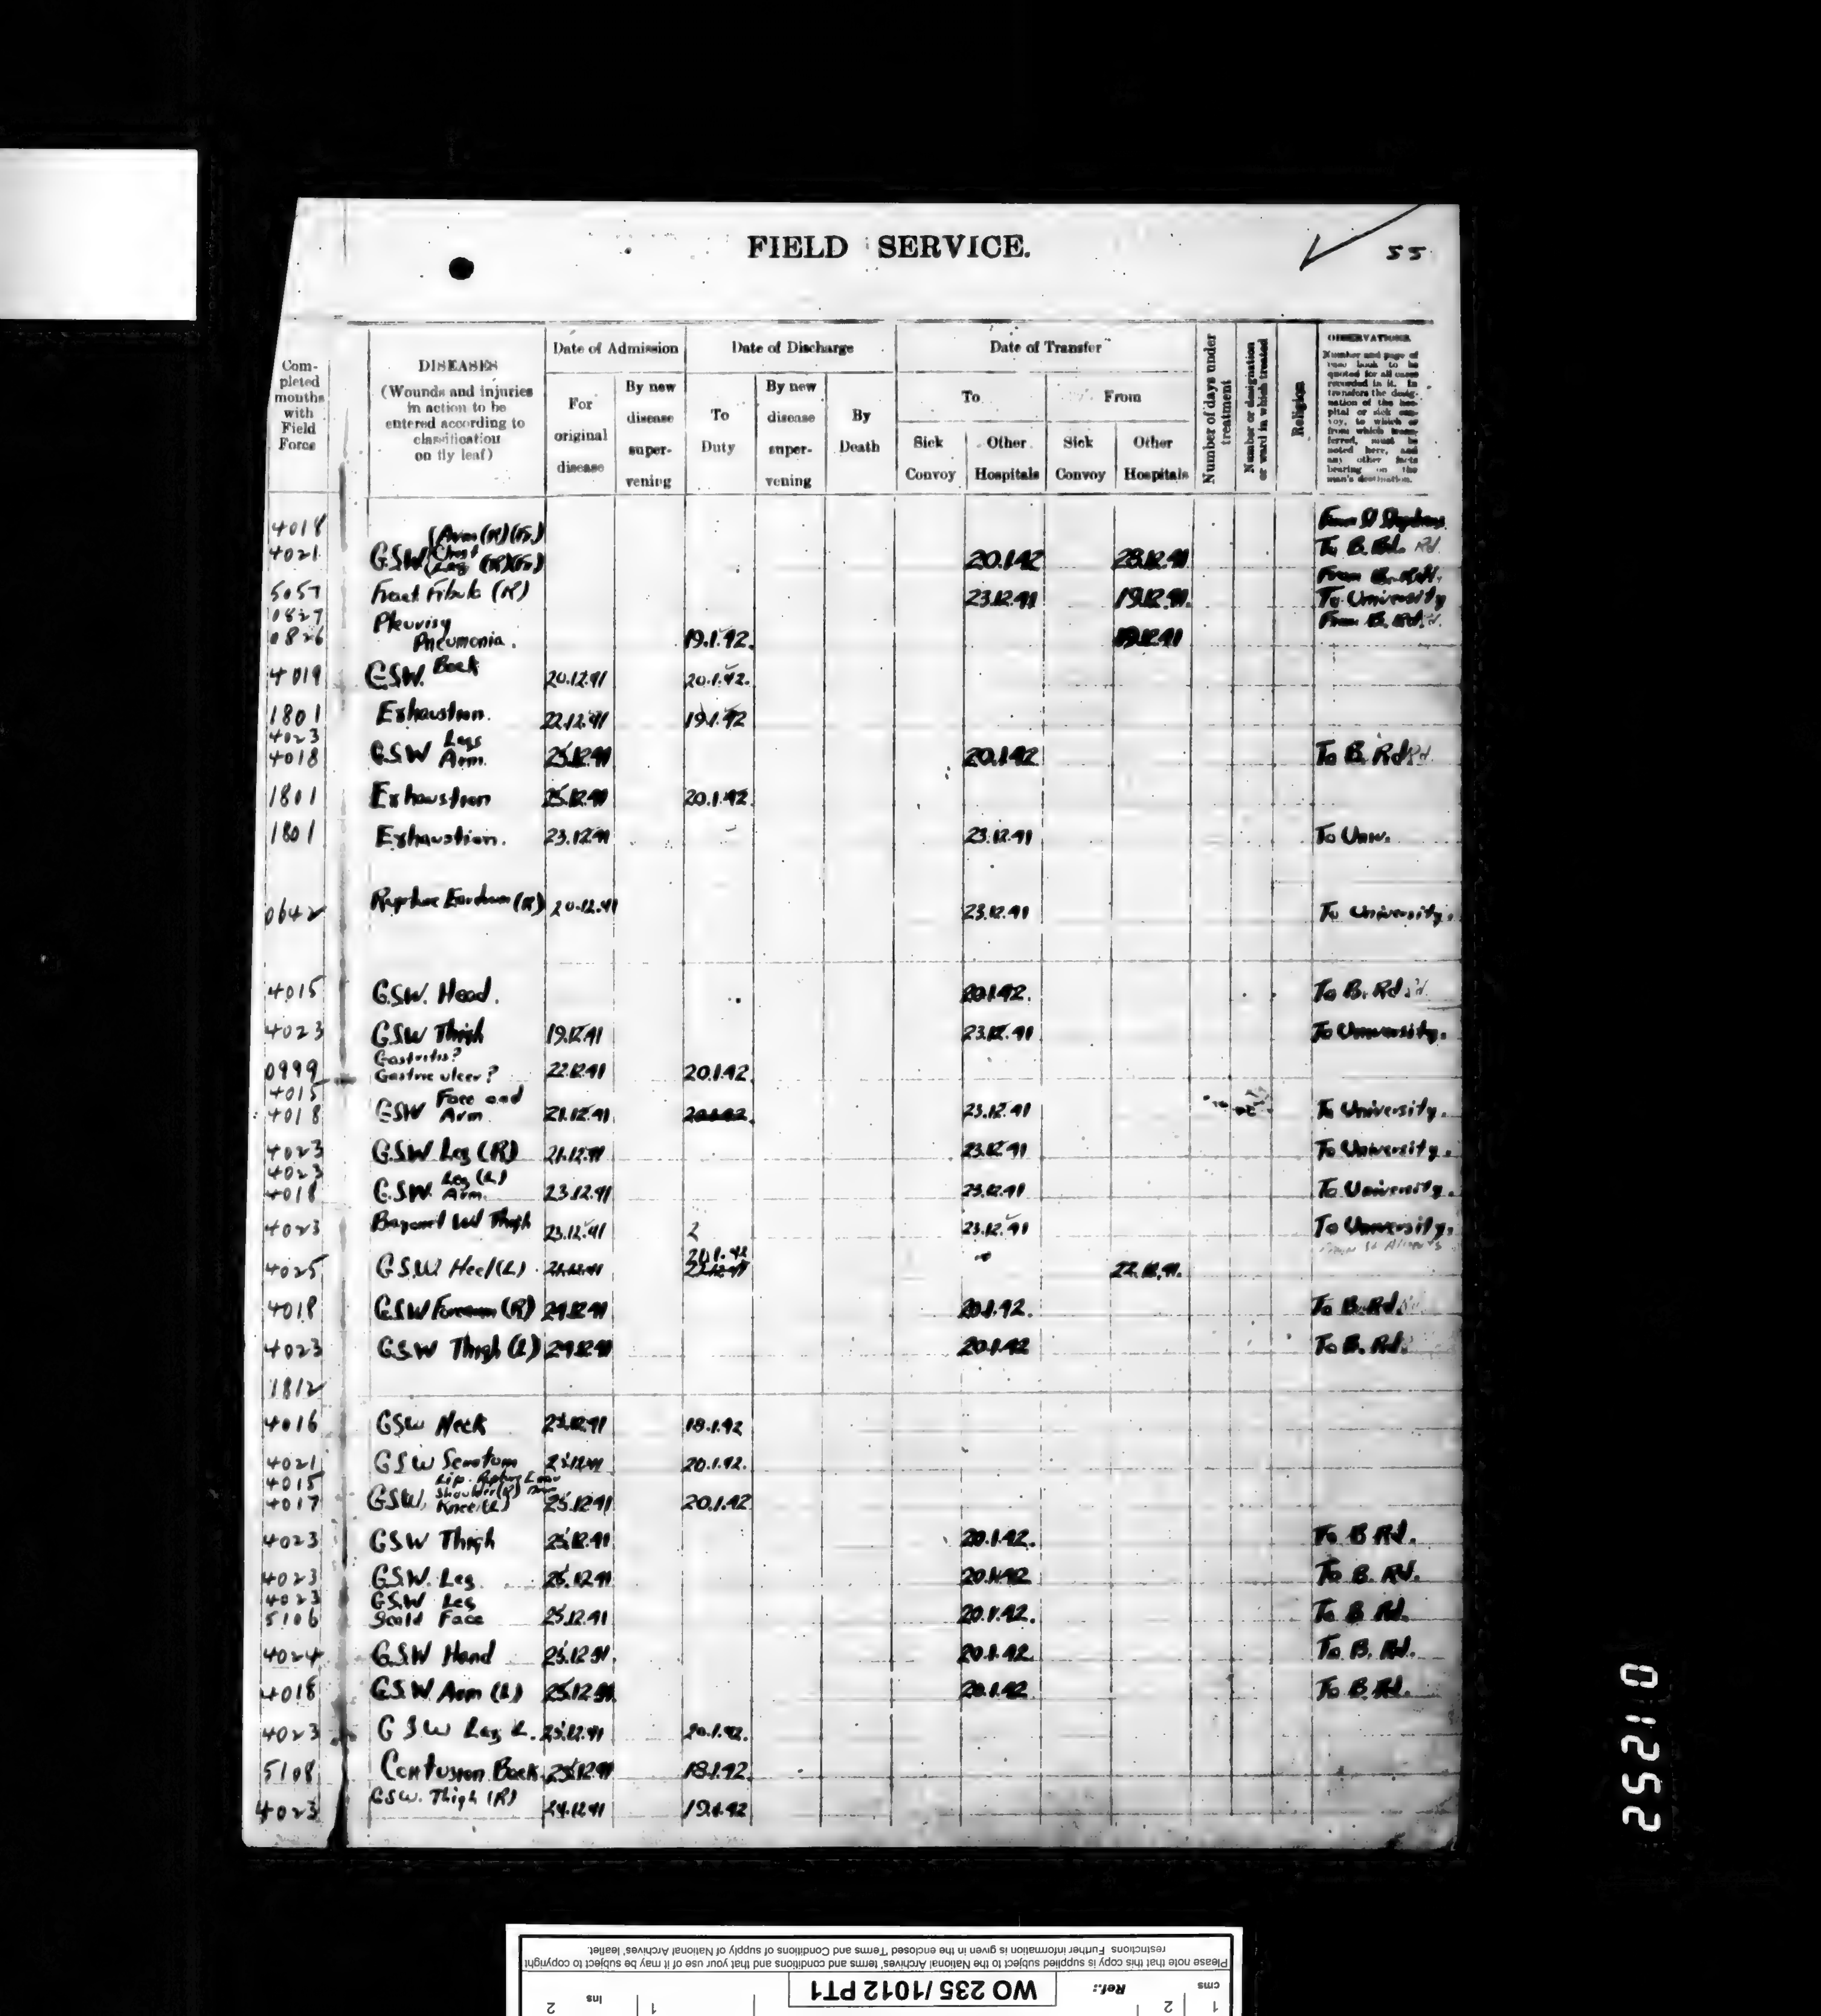 FIELD SERVICE.
55
Completed months with Field Force
DISEASES
(Wounds and injuries in action to be entered according to classification on fly leaf)
Date of Admission
For original disease
By new disease supervening
Date of Discharge
To Duty
By new disease supervening
By Death
Date of Transfer
To
Sick Convoy
Other Hospitals
From
Sick Convoy
Other Hospitals
Number of days under treatment
Number or designation or ward in which treated
Religion
OBSERVATIONS.
Number and page of case book to be quoted for all cases recorded in it. In transfers the designation of the hospital or sick convoy, to which or from which transferred, must be noted here, and any other facts bearing on the man's destination.
4018 (Arm (R) From St Stephens
4021 G.S.W. Chest Leg 20.1.42 28.12.41 To B. Rd.
5057 Fract Fibula (R) 23.12.41 19.12.41 To University
0827 Pleurisy From B. Rd.
0826 Pneumonia. 19.1.42. 19.12.41
4019 G.S.W. Back 20.12.41 20.1.42.
1801 Exhaustion. 22.12.41 19.1.42
4023 Legs
4018 G.S.W Arm. 25.12.41 20.1.42 To B. Rd
1801 Exhaustion 25.12.41 20.1.42
1801 Exhaustion. 23.12.41 23.12.41 To Univ.
0642 Rupture Eardrum (R) 20.12.41 23.12.41 To University.
4015 G.S.W. Head. 20.1.42. To B. Rd
4023 G.S.W Thigh 19.12.41 23.12.41 To University.
Gastritis?
0999 Gastric ulcer? 22.12.41 20.1.42
4015 Face and
4018 GSW Arm 21.12.41 20.1.42. 23.12.41 To University.
4023 G.S.W Leg (R) 21.12.41 23.12.41 To University.
4023 Leg (L)
4018 G.S.W. Arm. 23.12.41 23.12.41 To University.
4023 Bayonet Wd Thigh 23.12.41 2 23.12.41 To University.
20.1.42
4025 G.S.W. Heel (L). 21.12.41 22.12.41.
4018 G.S.W Forearm (R) 24.12.41 20.1.42. To B. Rd.
4023 G.S.W Thigh (L) 24.12.41 20.1.42 To B. Rd.
1812
4016 GSW Neck 25.12.41 18.1.42
4021 G.S.W Scrotum 25.12.41 20.1.42.
4015 Lip
Shoulder (R)
4017 G.S.W. Knee (L) 25.12.41 20.1.42
4023 GSW Thigh 25.12.41 20.1.42. To B Rd.
4023 G.S.W. Leg 25.12.41 20.1.42 To B. Rd.
4023 G.S.W Leg
5106 Scald Face 25.12.41 20.1.42. To B Rd.
4024 G.S.W Hand 25.12.41. 20.1.42. To B. Rd.
4018 G.S.W Arm (L) 25.12.41 20.1.42 To B. Rd.
4023 G S W Leg L. 25.12.41 20.1.42.
5108 Contusion Back 25.12.41 18.1.42
4023 G.S.W. Thigh (R) 24.12.41 19.1.42
25210
Please note that this copy is supplied subject to the National Archives' terms and conditions and that your use of it may be subject to copyright
restrictions. Further information is given in the enclosed 'Terms and Conditions of supply of National Archives' leaflet.
cms 1 2
Ref.:
WO 235/1012 PT1
1 ins 2